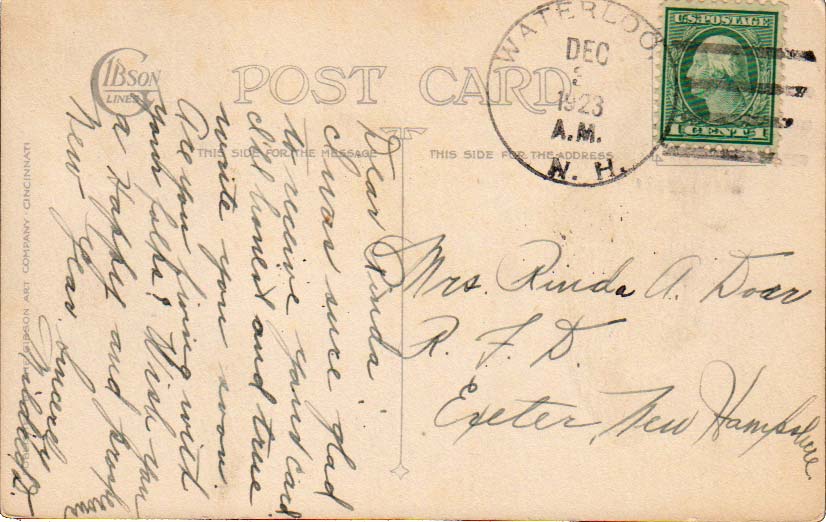 GIBSON
LINES
POST CARD
THIS SIDE FOR THE MESSAGE
THIS SIDE FOR THE ADDRESS
WATERLOO,
DEC
1923
A.M.
N. H.
U.S. POSTAGE
1 CENT 1
Mrs. Rinda A. Doar
R. F. D.
Exeter, New Hampshire.
Dear Rinda
I was sure glad
to receive your card
I'll honest and true
write you soon
Are you living with
your folks? Wish you
a Happy and prosperous
New Year. Sincerely
Mildred D.
THE GIBSON ART COMPANY, CINCINNATI